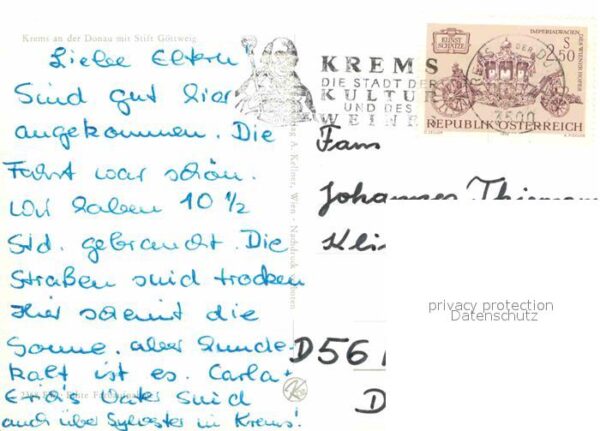 Krems an der Donau mit Stift Göttweig
Liebe Eltern
Sind gut hier
angekommen. Die
Fahrt war schön.
Wir haben 10 1/2
Std. gebraucht. Die
Straßen sind trocken
Hier scheint die
Sonne, aber hunde-
kalt ist es. Carla +
Vater sind
auch über Sylvester in Krems!
A. Kellner, Wien - Nachdruck
KREMS
DIE STADT DER
KULTUR
UND DES
WEINES
3500
KUNST
SCHÄTZE
IMPERIALWAGEN
DES WIENER HOFES
S
2.50
REPUBLIK ÖSTERREICH
Fam
Johannes
D56
D
privacy protection
Datenschutz